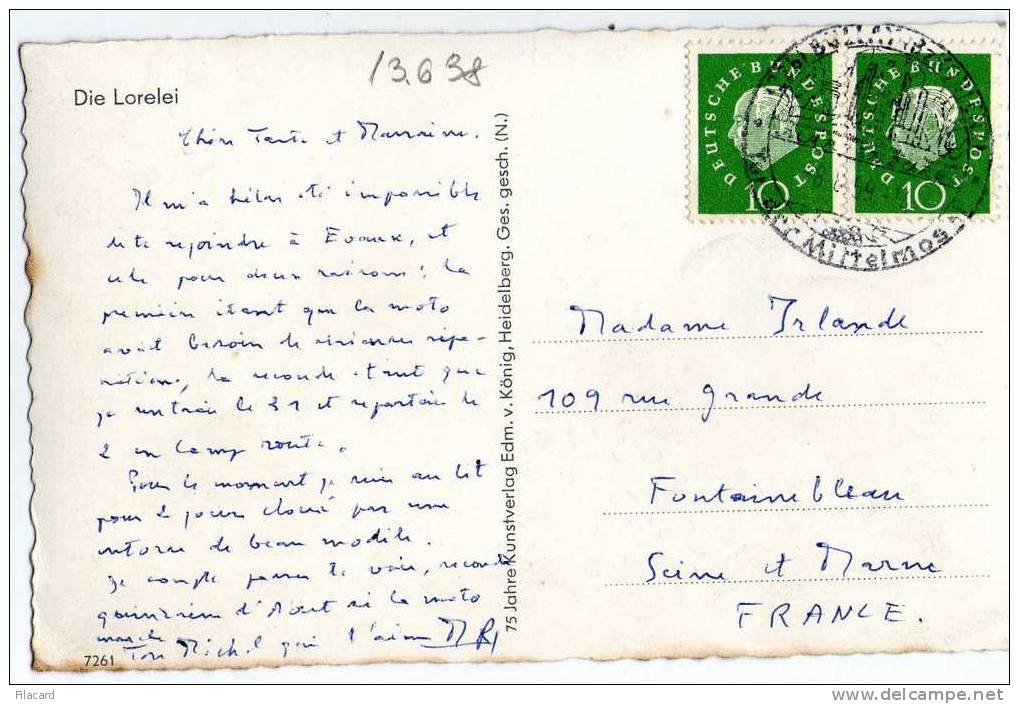 13.638
Die Lorelei
Chère Tante et Marraine.
Il m'a hélas été impossible
de te rejoindre à Evaux, et
cela pour deux raisons : la
première étant que la moto
avait besoin de sérieuses répa-
rations, la seconde étant que
je rentrais le 31 et repartais le
2 en camp route.
Pour le moment je suis au lit
pour 2 jours cloué par une
entorse de beau modèle.
Je compte passer te voir, seconde
quinzaine d'Aout si la moto
marche
Ton Michel qui t'aime
7261
75 Jahre Kunstverlag Edm. v. König, Heidelberg. Ges. gesch. (N.)
DEUTSCHE BUNDESPOST
10
DEUTSCHE BUNDESPOST
10
der Mittelmosel
Madame Irlande
109 rue Grande
Fontainebleau
Seine et Marne
FRANCE.
Filacard
www.delcampe.net